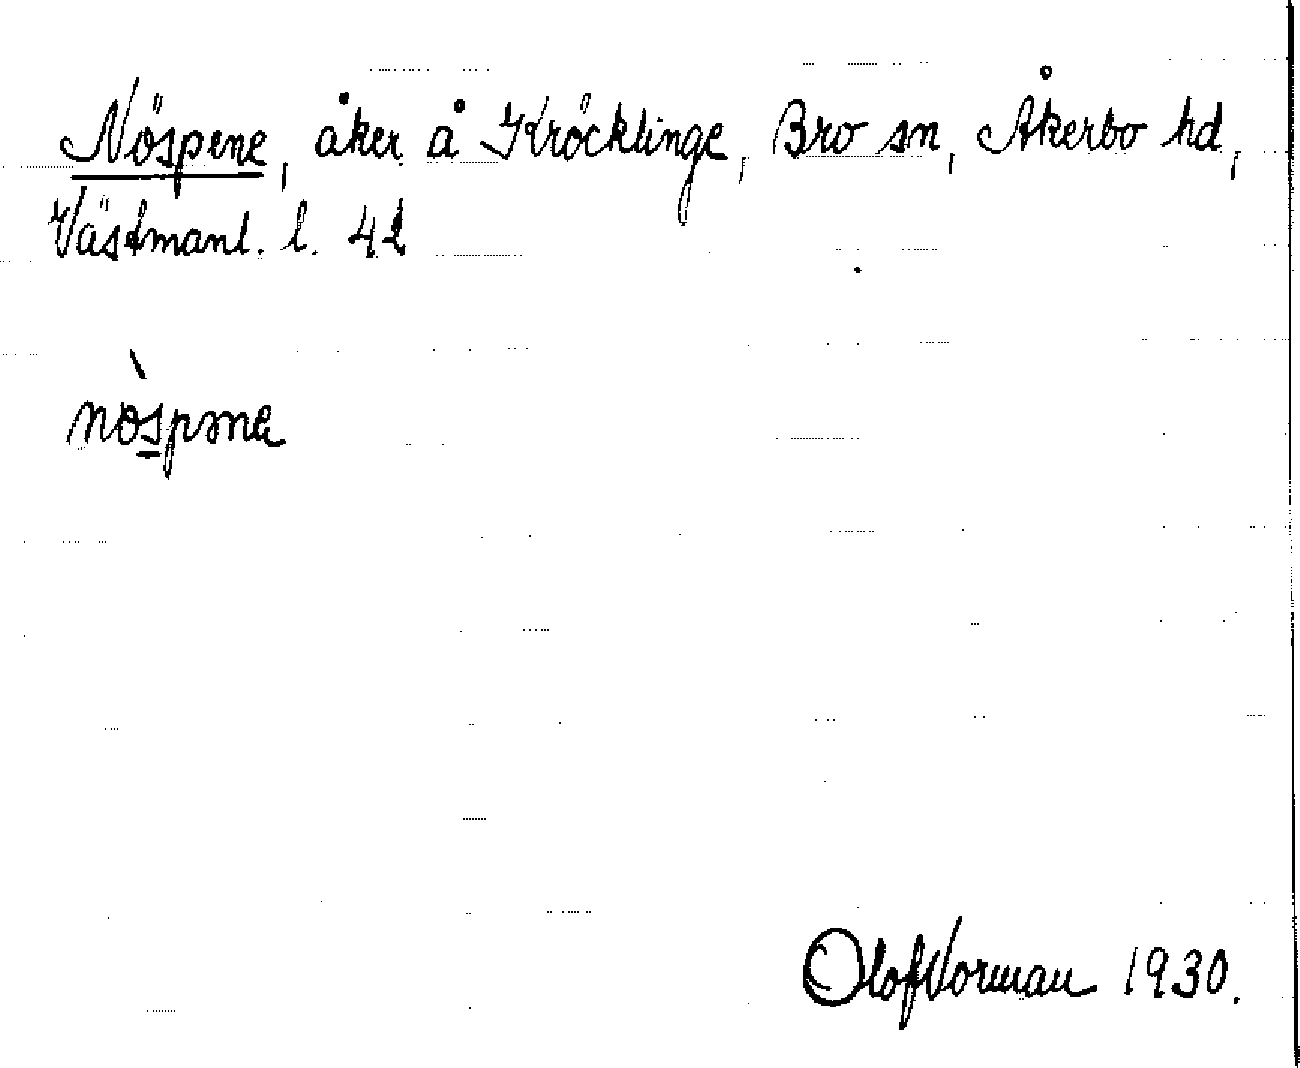 Nöspene, åker å Kröcklinge, Bro sn, Åkerbo hd,
Västmanl. l. 42
nòspəne
Olof Norman 1930.